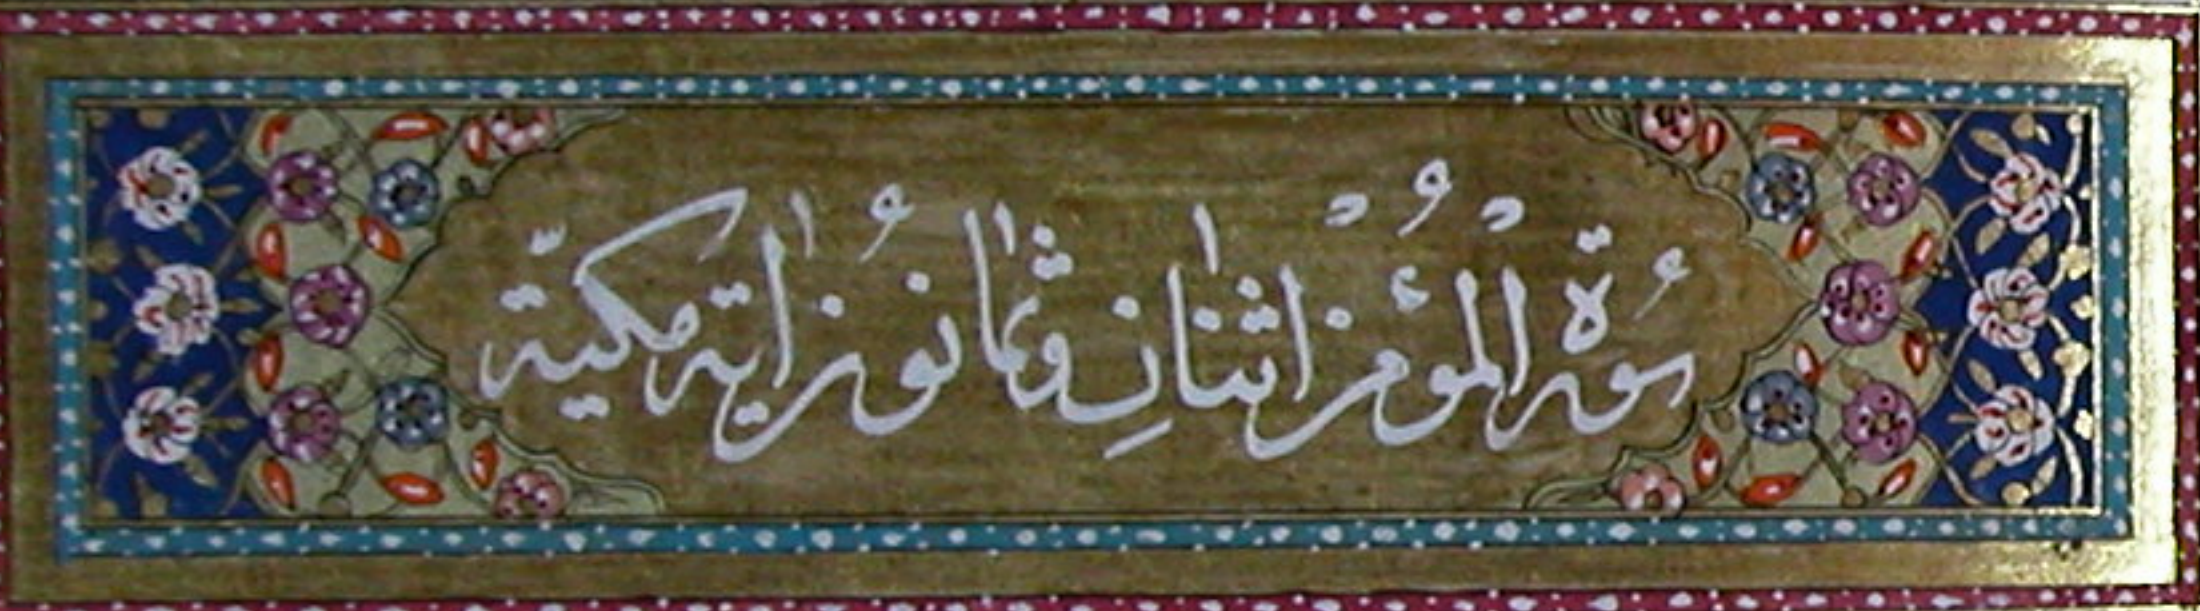 سُورَةُ الْمُؤْمِنُ اثْنَتَانِ وَثَمَانُونَ اٰيَةً مَكِّيَّةٌ